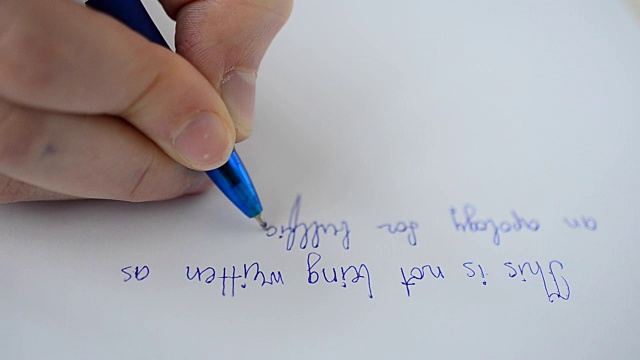 This is not being written as
an apology for bullfig